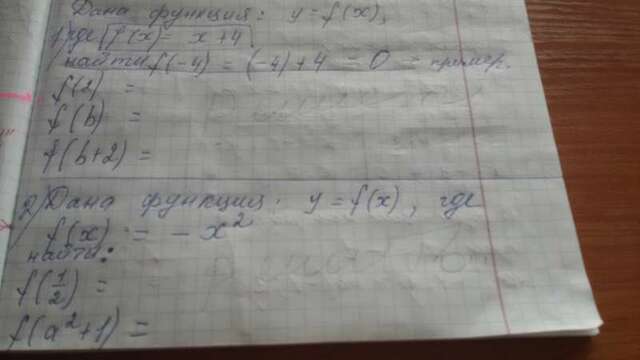 Дана функция: y=f(x),
где f(x) x+4
найти f(-4) = (-4)+4 = 0 = пример.
f(1) =
f(b) =
f(b+2) =
2) Дана функция: y=f(x), где
f(x) = -x²
найти:
f(1/2) =
f(a²+1) =